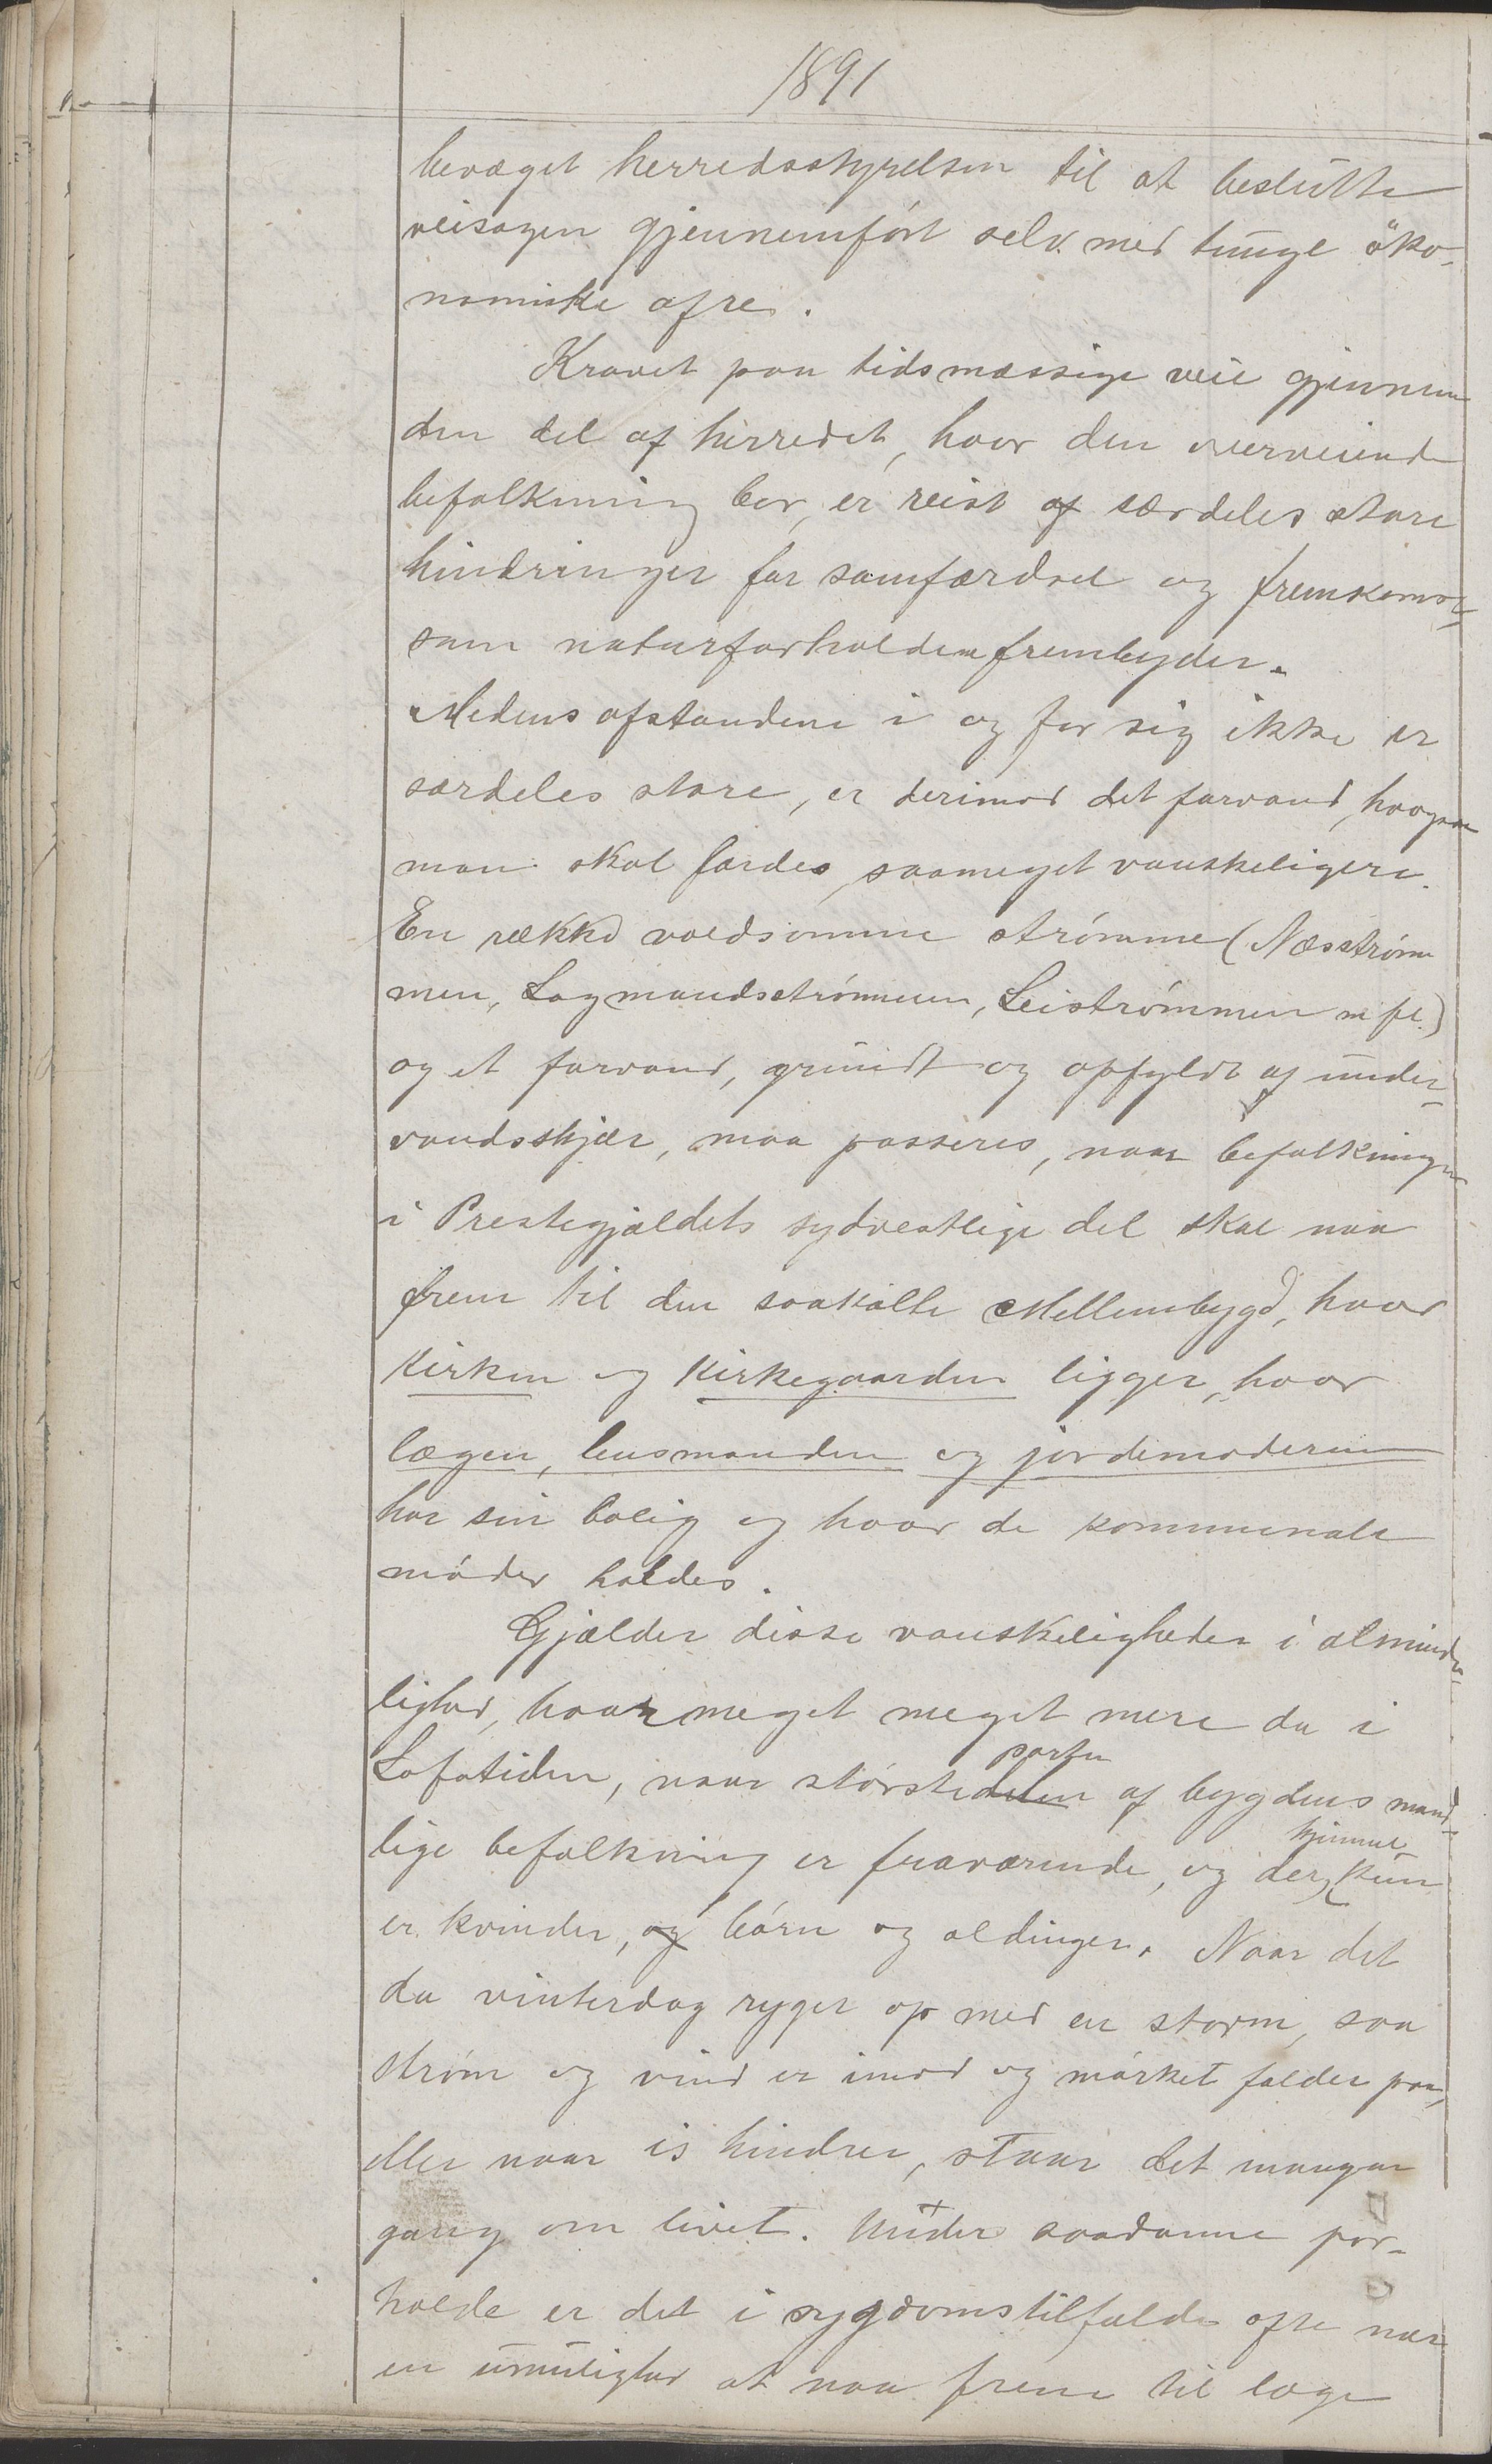 1891
bevæget herredsstyrelsen til at beslutte
veisagen gjennemført selv med tunge øko-
nomiske ofre.
Kravet paa tidsmæssige veie gjennem
den del af herredet, hvor den overveiende
befolkning bor, er reist af særdeles store
hindringer for samfærdsel og fremkomst,
som naturforholdene frembyder.
Medens afstandene i og for sig ikke er
særdeles store, er derimod det farvand, hvorpaa
man skal færdes, saameget vanskeligere.
En række voldsomme strømme (Næsstrøm
men, Lagmandsstrømmen, Leistrømmen m fl.)
og et farvand, grundt og opfyldt af under-
vandsskjær, maa passeres, naar befolkningen
i Prestegjældets sydvestlige del skal naa
frem til den saakalte Mellembygd, hvor
kirken og kirkegaarden ligger, hvor
lægen, lensmanden og jordemoderen
har sin bolig og hvor de kommunale
møder holdes.
Gjælder disse vanskeligheder i alminde-
lighed, hvor meget meget mere da i
Lofotiden, naar størstedelen parten af bygdens mand-
lige befolkning er fraværende, og der hjemme kun
er kvinder, og børn og oldinger. Naar det
da vinterdag ryger op med en storm, saa
strøm og vind er imod og mørket falder paa,
eller naar is hindrer, staar det mangen
gang om livet. Under saadanne for-
holde er det i sygdomstilfælde ofte nær
en umulighed at naa frem til læge